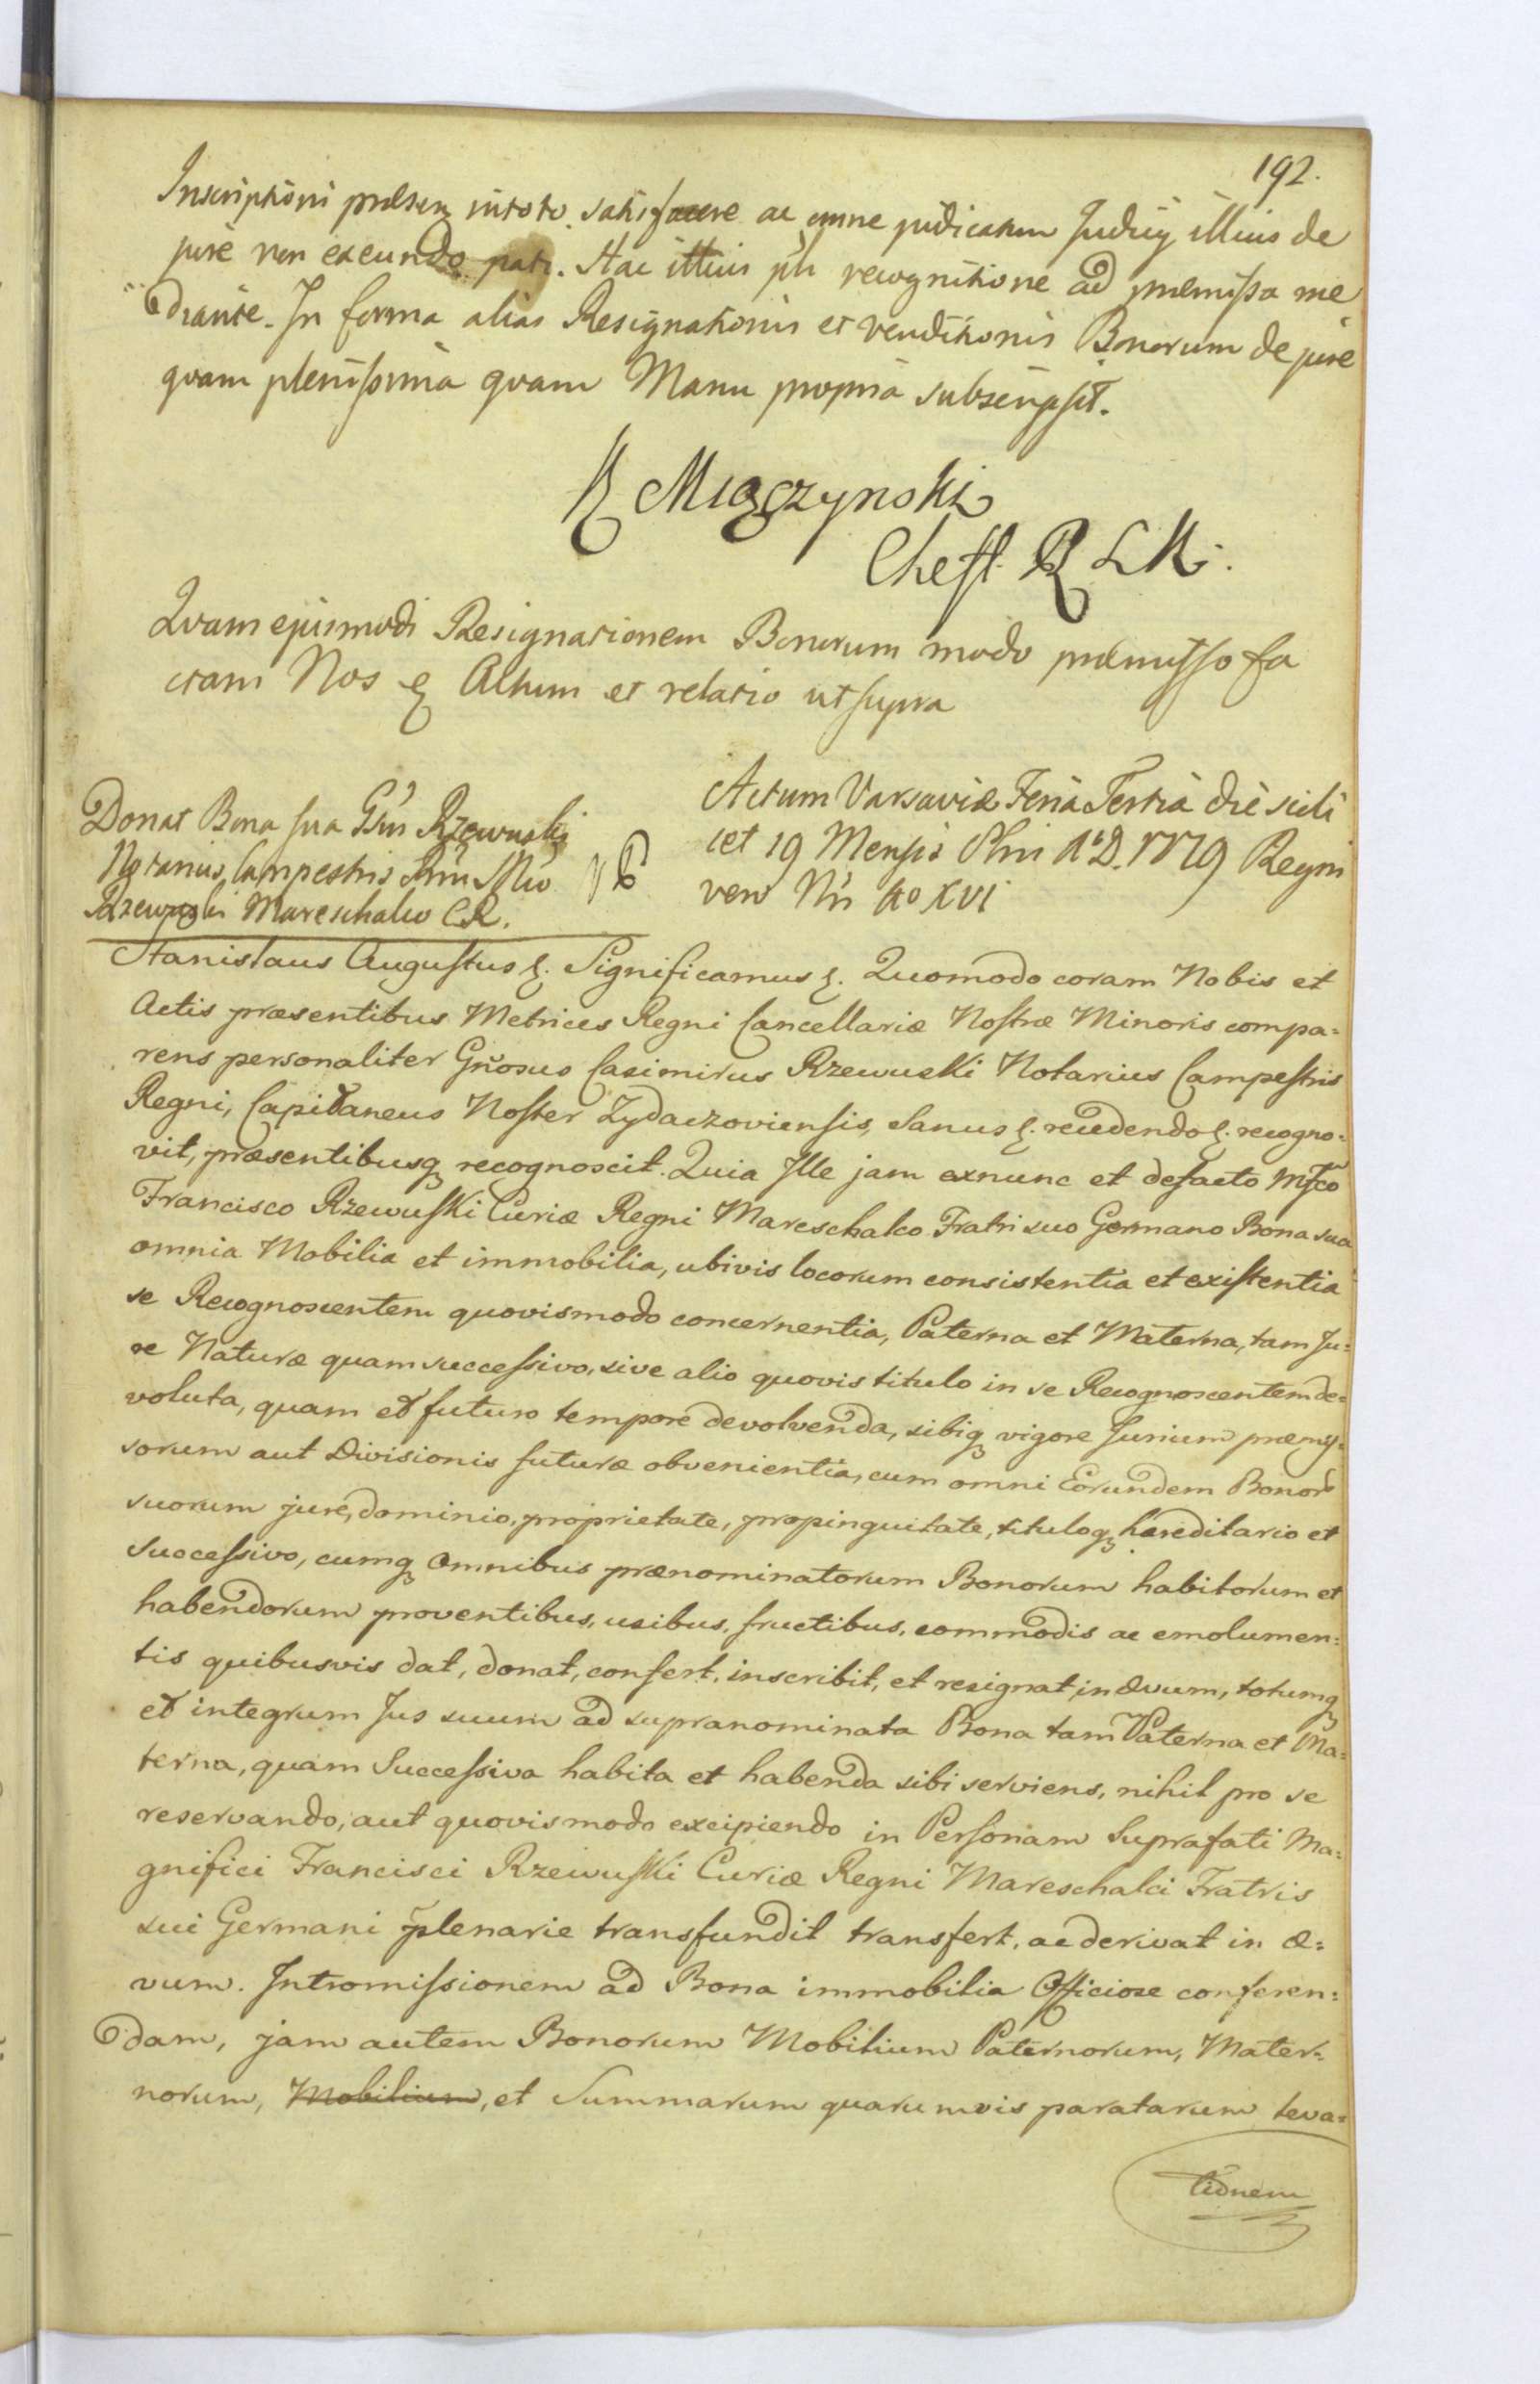 192.
Inscriptioni præsen₃ in toto satisfacere ac omne judicatum Judicÿ illius de
jure non exeundo pati. Hac illius pñti recognitione ad præmissa me
diante. In forma alias Resignationis et venditionis Bonorum de jure
quam plenissima quam Manu propria subscripsit.
K Mięczynski
Chest. R L K.
Quam ejusmodi Resignationem Bonorum modo præmisso fa
ctam Nos & Actum et relatio ut supra
Donat Bona sua Gsus Rzewuski
Notarius Campestris
Rzewuski Mareschalco C R.
Actum Varsaviæ Feria Tertia die scili
cet 19 Mensis A: D. 1779 Regni
vero Nri Ao XVI
Stanislaus Augustus &. Significamus &. Quomodo coram Nobis et
Actis præsentibus Metrices Regni Cancellariæ Nostræ Minoris compa=
rens personaliter Gñosus Casimirus Rzewuski Notarius Campestris
Regni, Capitaneus Noster Zydaczoviensis, Sanus &. recedendo &. recogno=
vit, præsentibusq₃ recognoscit. Quia Ille jam exnunc et defacto Mfco
Francisco Rzewuski Curiæ Regni Mareschalco Fratri suo Germano Bona sua
omnia Mobilia et immobilia, ubivis locorum consistentia et existentia
se Recognoscentem quovismodo concernentia, Paterna et Materna, tam Ju=
re Naturæ quam successivo, sive alio quovis titulo in se Recognoscentem de=
voluta, quam et futuro tempore devolvenda, sibiq₃ vigore Jurium præmis=
sorum aut Divisionis futuræ obvenientia, cum omni Eorundem Bonorũ
suorum jure, dominio, proprietate, propinquitate, tituloq₃ hæreditario et
Successivo, cumq₃ Omnibus prænominatorum Bonorum habitorum et
habendorum proventibus, usibus, fructibus, commodis ac emolumen=
tis quibusvis dat, donat, confert, inscribit, et resignat in ævum, totumq₃
et integrum Jus suum ad supranominata Bona tam Paterna et Ma=
terna, quam Successiva habita et habenda sibi serviens, nihil pro se
reservando, aut quovismodo excipiendo in Personam Suprafati Ma=
gnifici Francisci Rzewuski Curiæ Regni Mareschalci Fratris
sui Germani plenarie transfundit transfert, ac derivat in æ=
vum. Intromissionem ad Bona immobilia Officiose conferen=
dam, jam autem Bonorum Mobilium Paternorum, Mater=
norum, Mobilium, et Summarum quarumvis paratarum leva=
tionem